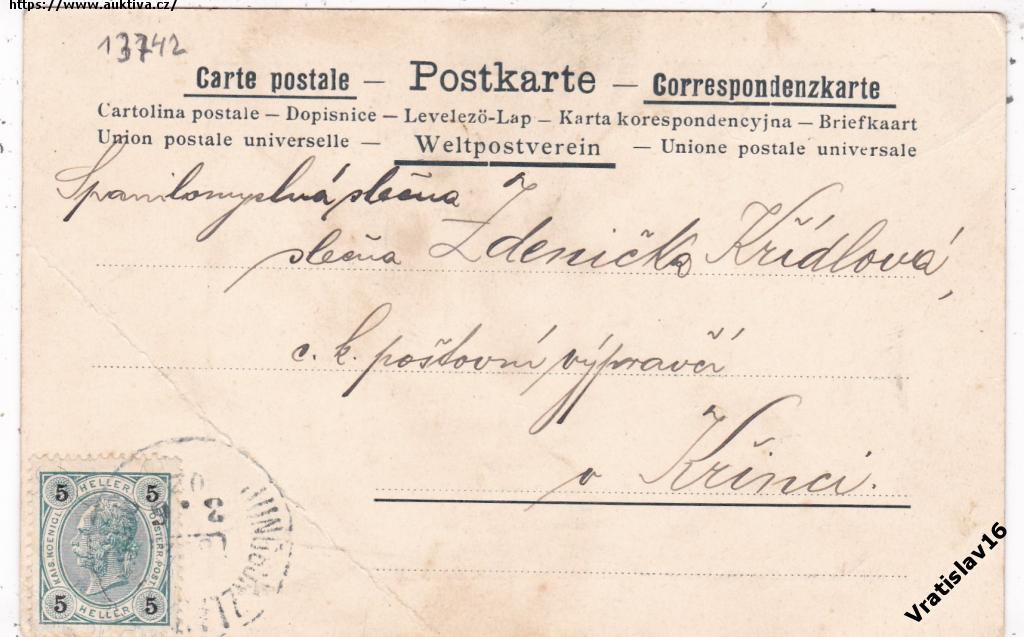 https://www.auktiva.cz/
13742
Carte postale — Postkarte — Correspondenzkarte
Cartolina postale — Dopisnice — Levelező-Lap — Karta korespondencyjna — Briefkaart
Union postale universelle — Weltpostverein — Unione postale universale
Spanilomyslná slečna
slečna Zdenička Křídlová,
c. k. poštovní výpravčí
v Křinci.
5 HELLER 5
KAIS. KOENIGL. OESTERR. POST.
5 HELLER 5
Vratislav16